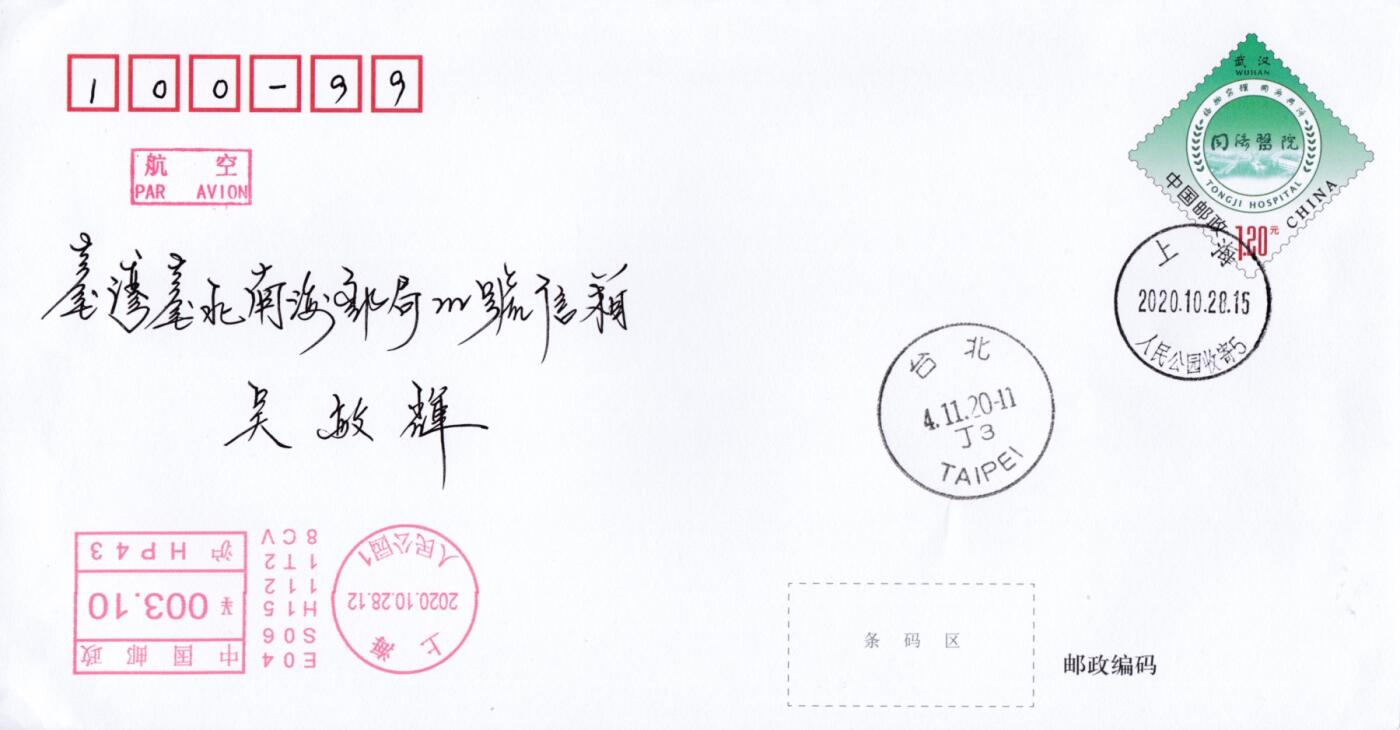 100-99
航 空
PAR AVION
臺灣臺北南海郵局111號信箱
吳敏輝
武汉
WUHAN
同济醫院
TONGJI HOSPITAL
中国邮政
CHINA
1.20元
上海
2020.10.28.15
人民公园收寄5
台北
4.11.20-11
J3
TAIPEI
中国邮政
¥ 003.10
沪 HP43
E04
S06
H15
112
1T2
8CV
上海
2020.10.28.12
人民公园1
条码区
邮政编码